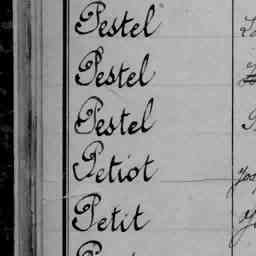 Pestel
Pestel
Pestel
Petiot
Petit